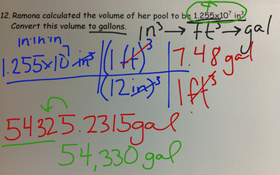 12. Ramona calculated the volume of her pool to be 1.255x10⁷ in³.
Convert this volume to gallons.
in³ → ft³ → gal
in·in·in
1.255x10⁷ in³ | (1 ft)³ | 7.48 gal
(12 in)³ | 1 ft³
54325.2315gal
54,330 gal